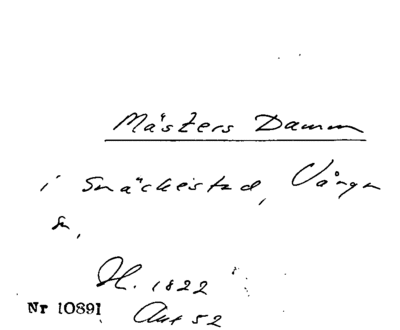 Mästers Damm
i Snäckestad, Vånga
sn.
H. 1822
Akt 52
Nr 10891